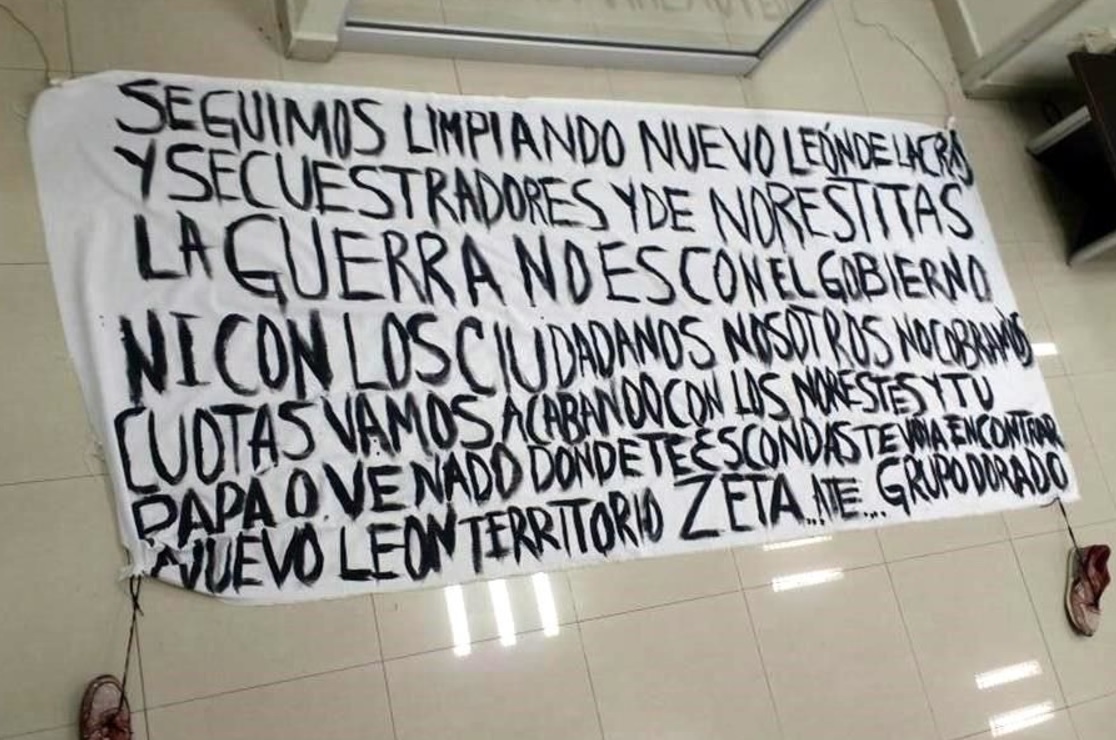 SEGUIMOS LIMPIANDO NUEVO LEÓN DE LACRAS
Y SECUESTRADORES Y DE NORESTITAS
LA GUERRA NO ES CON EL GOBIERNO
NI CON LOS CIUDADANOS NOSOTROS NO COBRAMOS
CUOTAS VAMOS ACABANDO CON LOS NORESTES Y TU
PAPA O VENADO DONDE TE ESCONDAS TE VOY A ENCONTRAR
NUEVO LEON TERRITORIO ZETA.. ATE... GRUPO DORADO